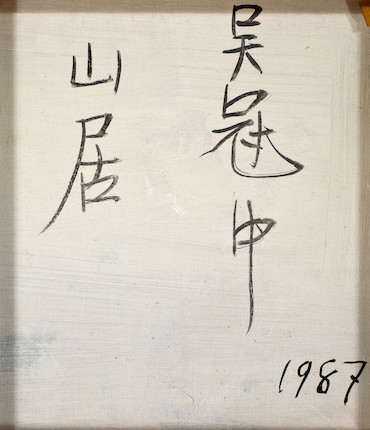 吴冠中
山居
1987